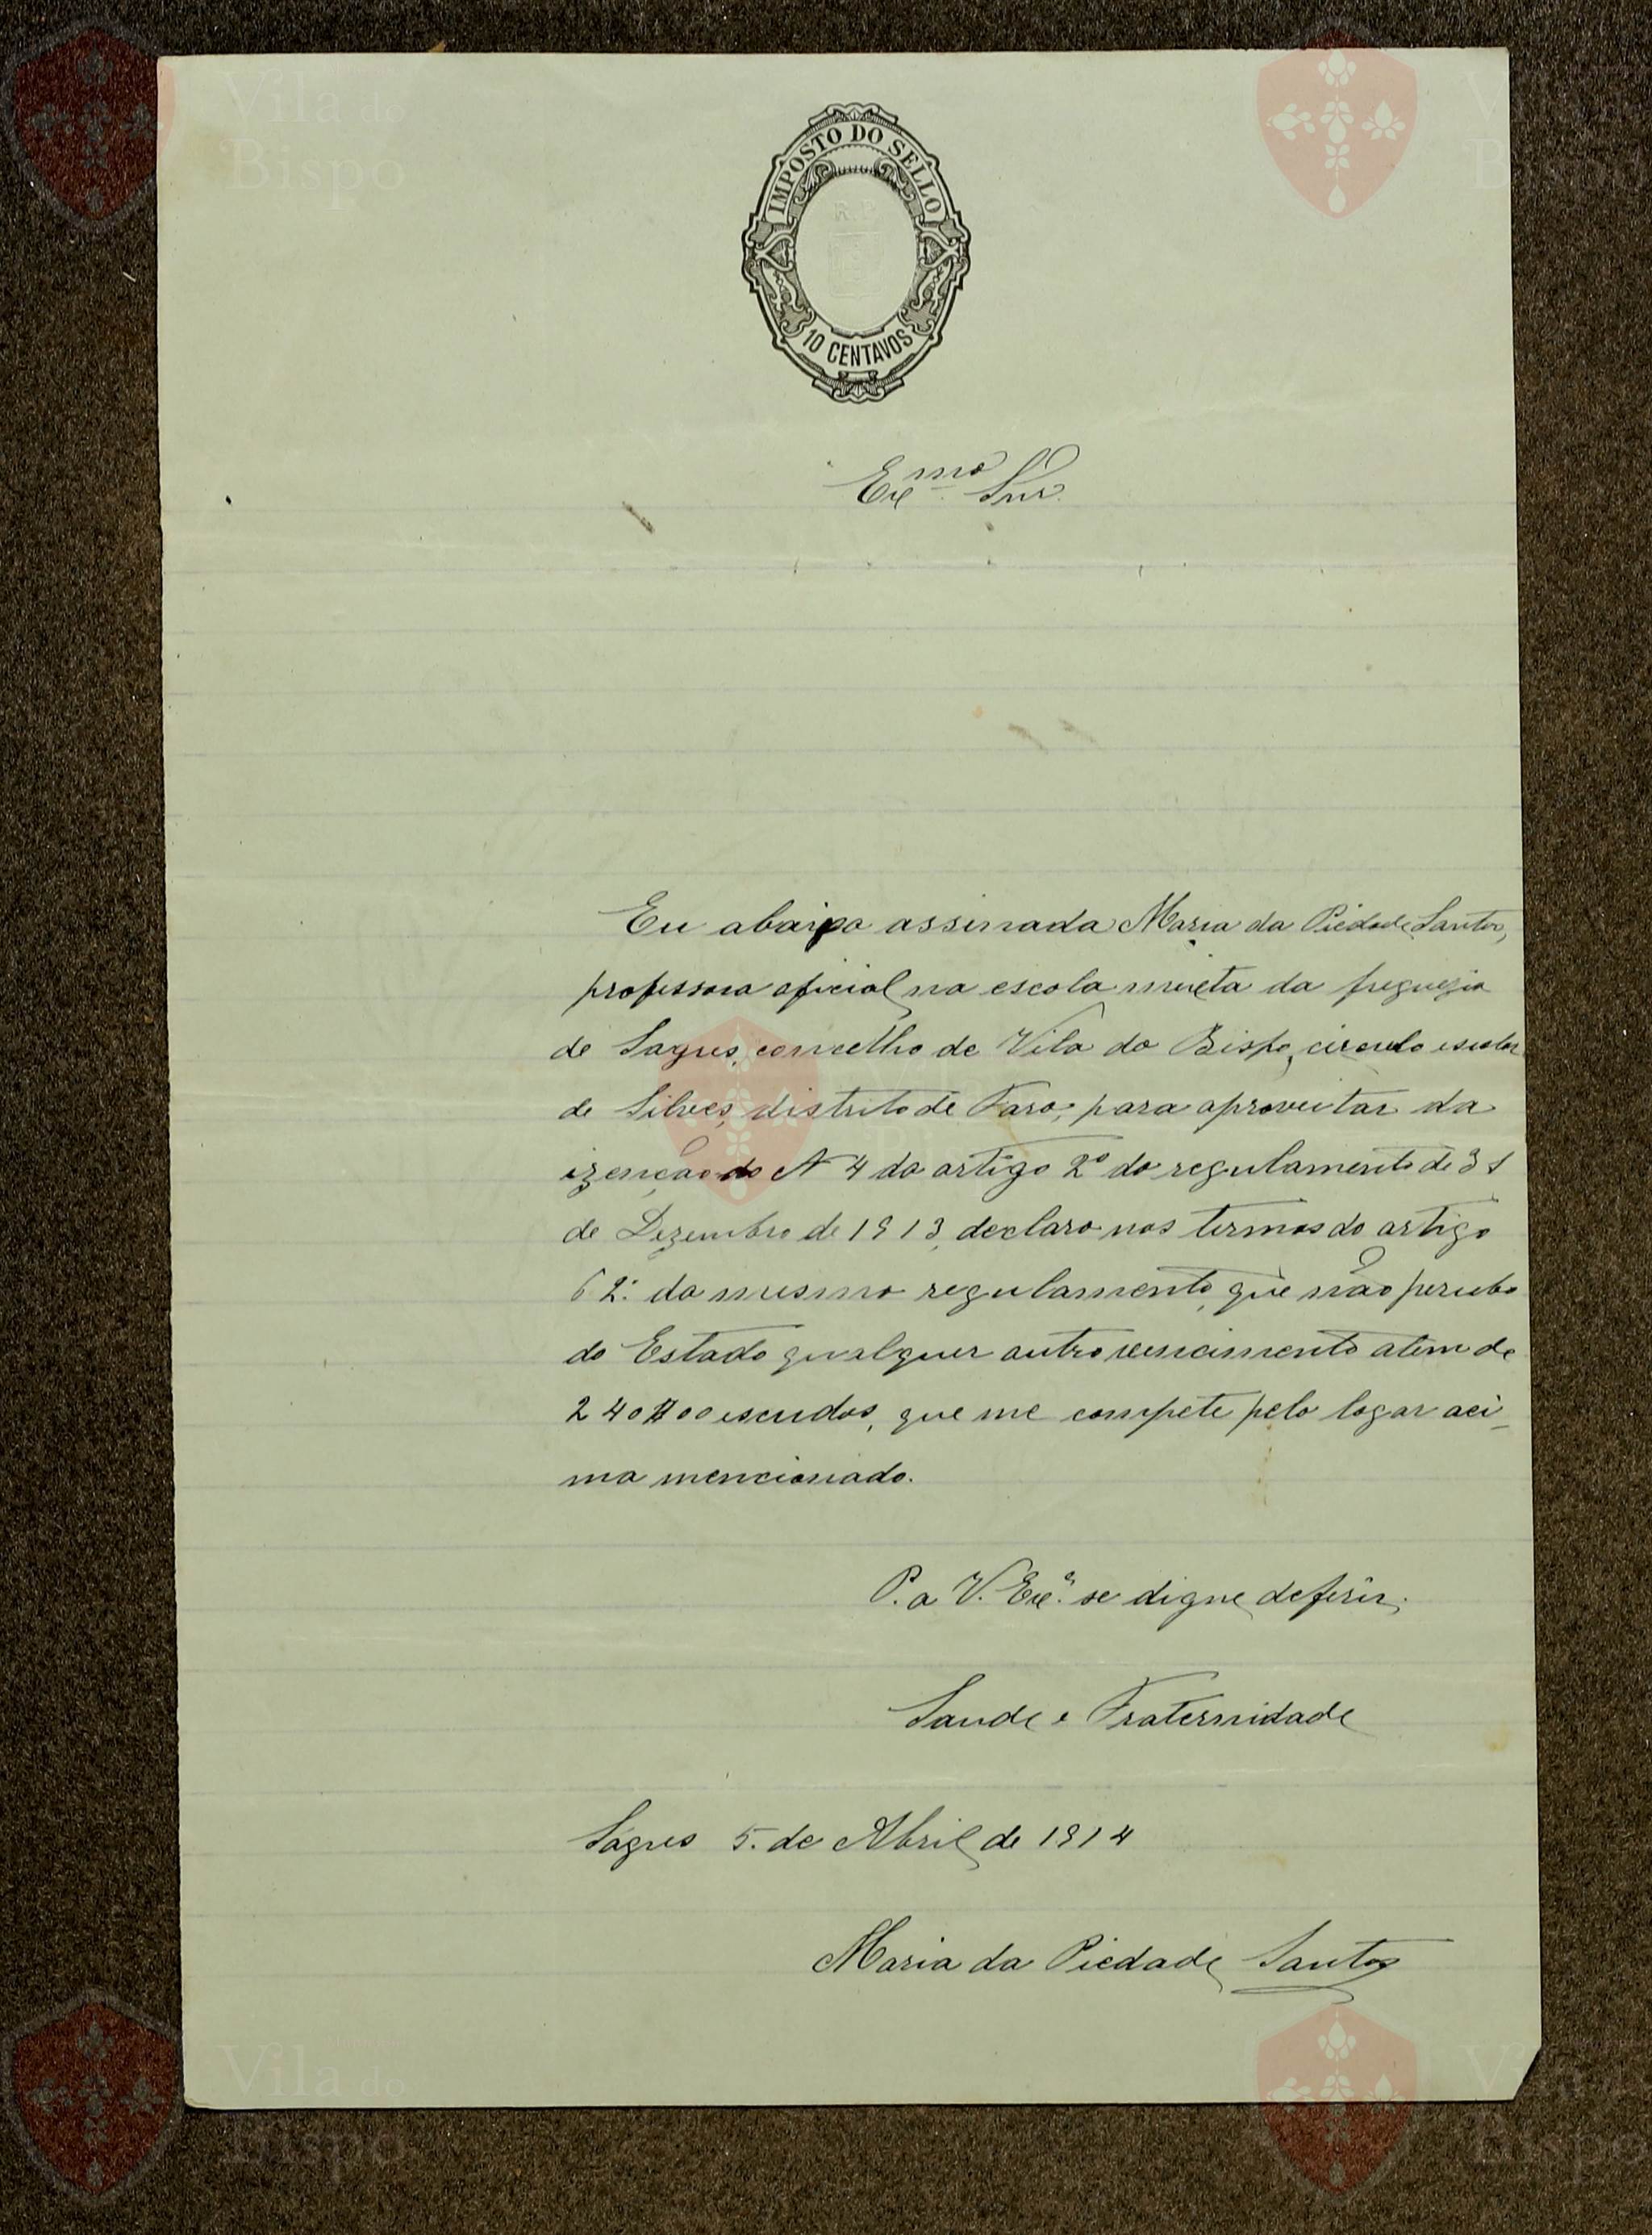 Vila do
Bispo
IMPOSTO DO SELLO
R. P.
10 CENTAVOS
Exmo. Snr.
Eu abaixo assinada Maria da Piedade Santos,
professora oficial na escola mixta da freguezia
de Sagres, concelho de Vila do Bispo, circulo escolar
de Silves, distrito de Faro, para aproveitar da
izenção do N 4 do artigo 2º do regulamento de 31
de Dezembro de 1913, declaro nos termos do artigo
62º do mesmo regulamento, que não percebo
do Estado qualquer outro vencimento alem de
240$00 escudos, que me compete pelo logar aci-
ma mencionado.
P. a V. Exª. se digne deferir.
Saude e Fraternidade
Sagres 5. de Abril de 1914
Maria da Piedade Santos
Vila do
Bispo